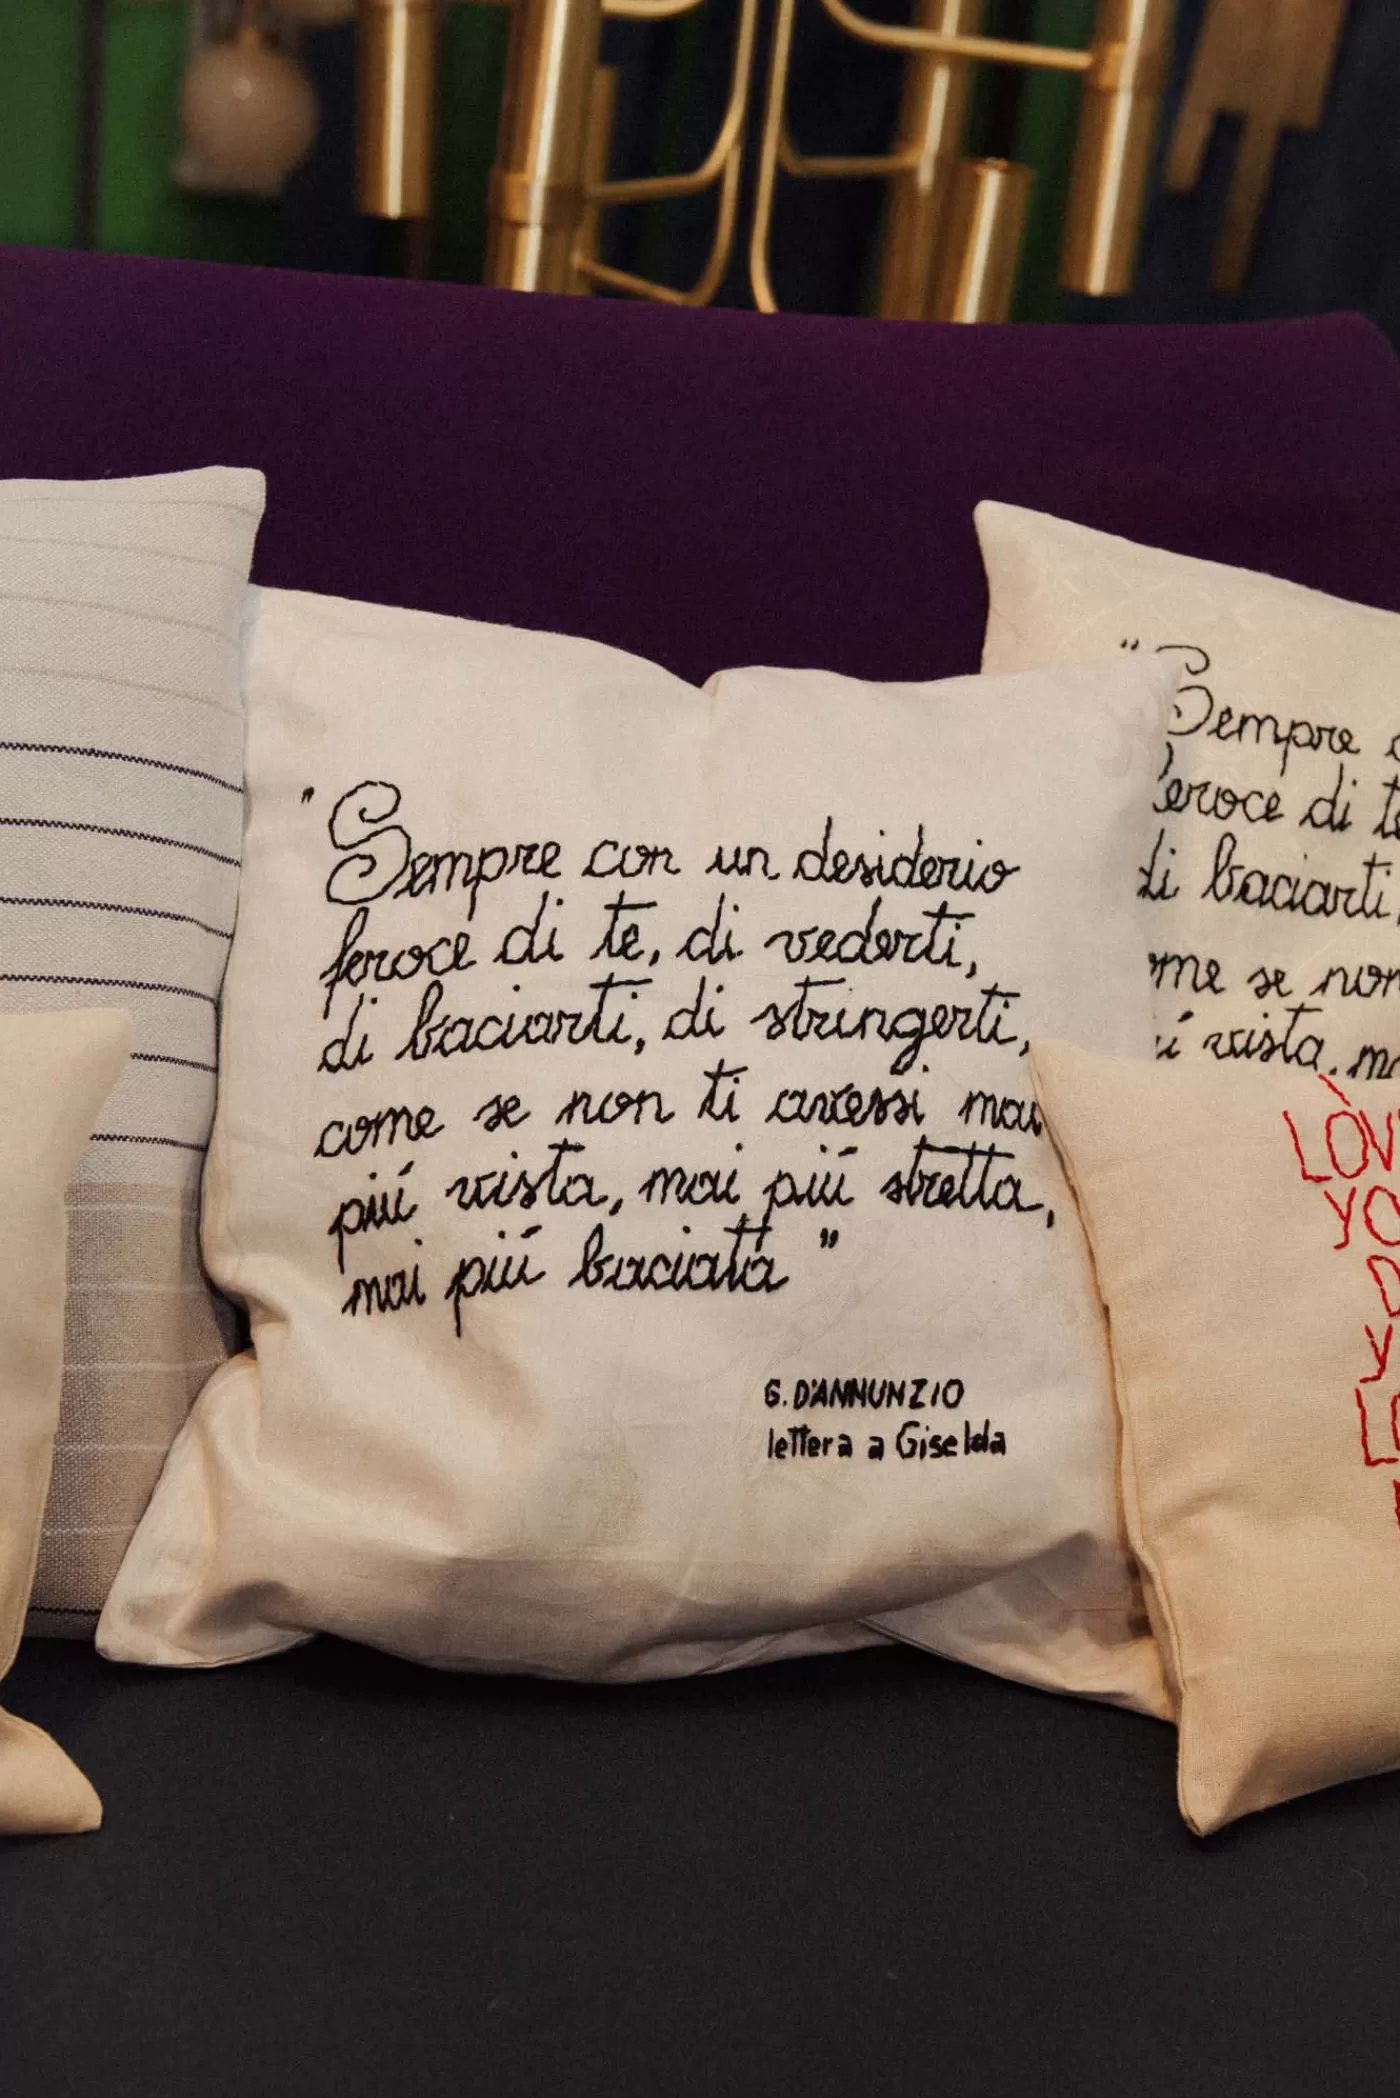 "Sempre con un desiderio
feroce di te, di vederti,
di baciarti, di stringerti,
come se non ti avessi mai
piú vista, mai piú stretta,
mai piú baciata"
G. D'ANNUNZIO
lettera a Giselda
"Sempre
feroce di te
di baciarti,
me se non
vista, m
LÒV
YO
D
K
E